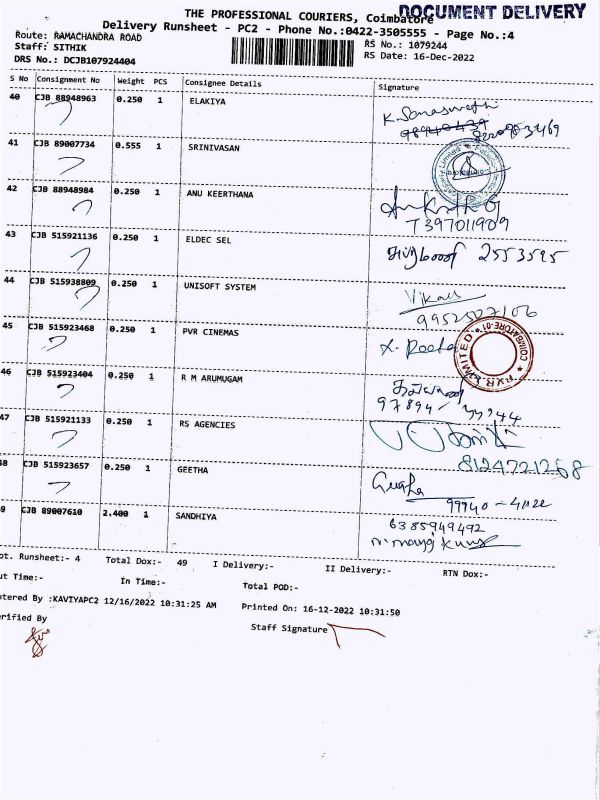 DOCUMENT DELIVERY
THE PROFESSIONAL COURIERS, Coimbatore
Delivery Runsheet - PC2 - Phone No.:0422-3505555 - Page No.:4
Route: RAMACHANDRA ROAD
RS No.: 1079244
Staff: SITHIK
RS Date: 16-Dec-2022
DRS No.: DCJB107924404
S No Consignment No Weight PCS Consignee Details Signature
40 CJB 88948963 0.250 1 ELAKIYA
41 CJB 89007734 0.555 1 SRINIVASAN
42 CJB 88948984 0.250 1 ANU KEERTHANA
7397011909
43 CJB 515921136 0.250 1 ELDEC SEL 2553595
44 CJB 515938809 0.250 1 UNISOFT SYSTEM
9952507106
45 CJB 515923468 0.250 1 PVR CINEMAS
COIMBATORE-01 P.V.R LIMITED
46 CJB 515923404 0.250 1 R M ARUMUGAM
47 CJB 515921133 0.250 1 RS AGENCIES
8124721268
48 CJB 515923657 0.250 1 GEETHA Geetha
99940-4122
49 CJB 89007610 2.400 1 SANDHIYA 6385949492
ot. Runsheet:- 4 Total Dox:- 49 I Delivery:- II Delivery:- RTN Dox:-
ut Time:- In Time:- Total POD:-
tered By :KAVIYAPC2 12/16/2022 10:31:25 AM Printed On: 16-12-2022 10:31:50
erified By Staff Signature